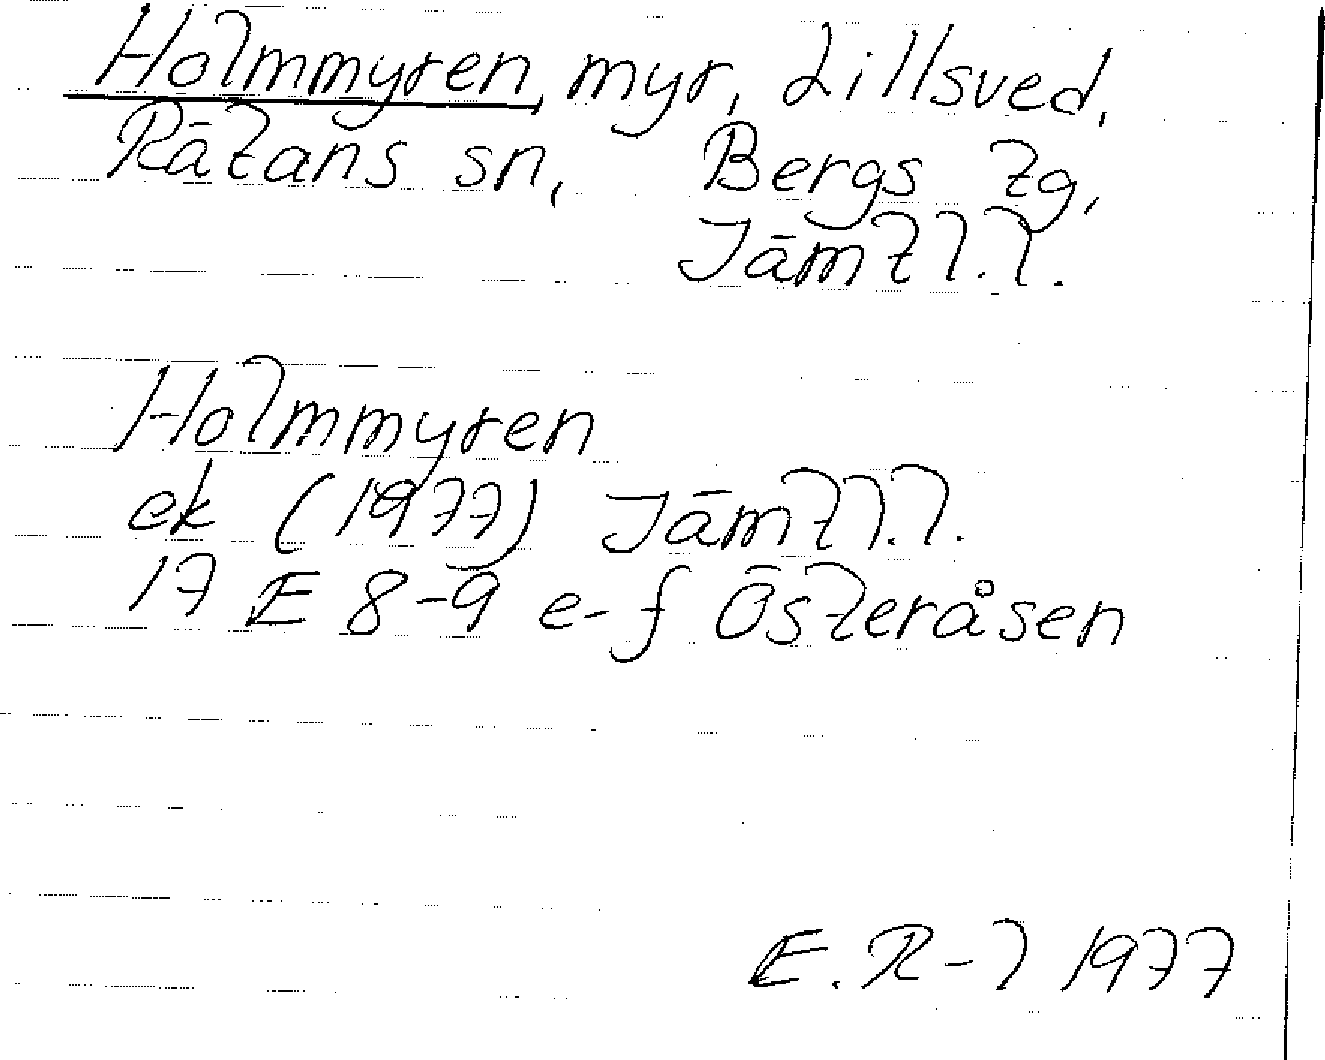 Holmmyren, myr, Lillsved,
Rätans sn, Bergs tg,
Jämtl.l.
Holmmyren
ek (1977) Jämtl.l.
17 E 8-9 e-f Österåsen
E. R-l 1977